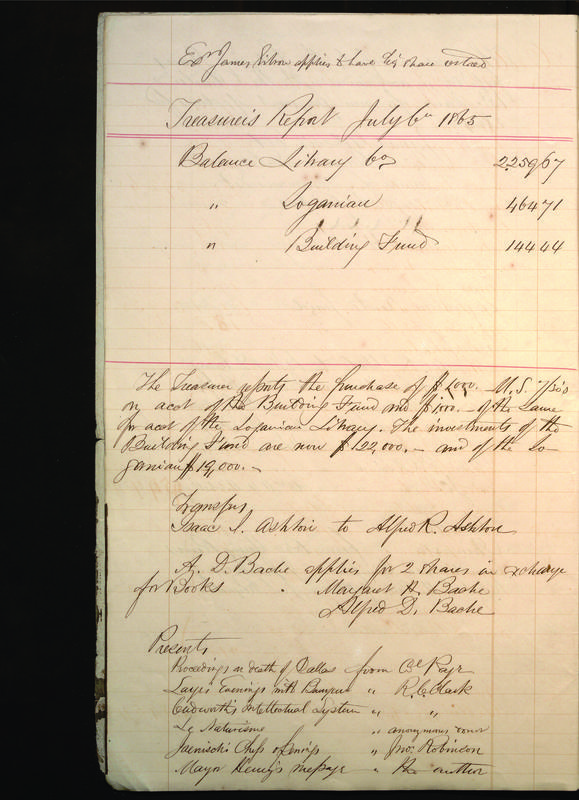 Exr James applies to have his share restored
Treasurer's Report July 6th 1865
Balance Library Co 2259 67
" Loganian 464 71
" Building Fund 144 44
The Treasurer reports the purchase of $1,000. U.S. 7/30s
on acct of the Building Fund and $1000.- of the same
for acct of the Loganian Library. The investments of the
Building Fund are now $122,000.- and of the Lo-
ganian $19,000.-
Transfer
Isaac S. Ashton to Alfred R. Ashton
A. D. Bache applies for 2 shares in exchange
for Books. Margaret H. Bache
Alfred D. Bache
Presents
Proceedings on death of Dallas from
Evenings with " R. C. Clark
Cudworth's Intellectual System " "
Le Naturisme " anonymous donor
Jaenisch's Chess Openings " Jno. Robinson
Mayor Henry's message " the author